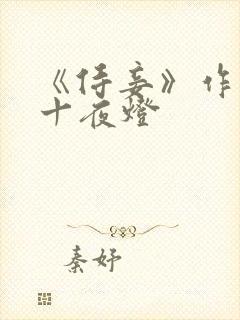 《侍妾》作
十夜燈
秦妤